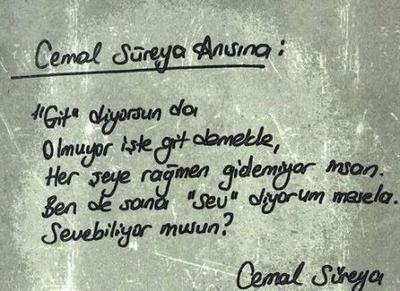 Cemal Süreya Anısına:
"Git" diyorsun da
Olmuyor işte git demekle,
Her şeye rağmen gidemiyor insan.
Ben de sana "sev" diyorum mesela.
Sevebiliyor musun?
Cemal Süreya